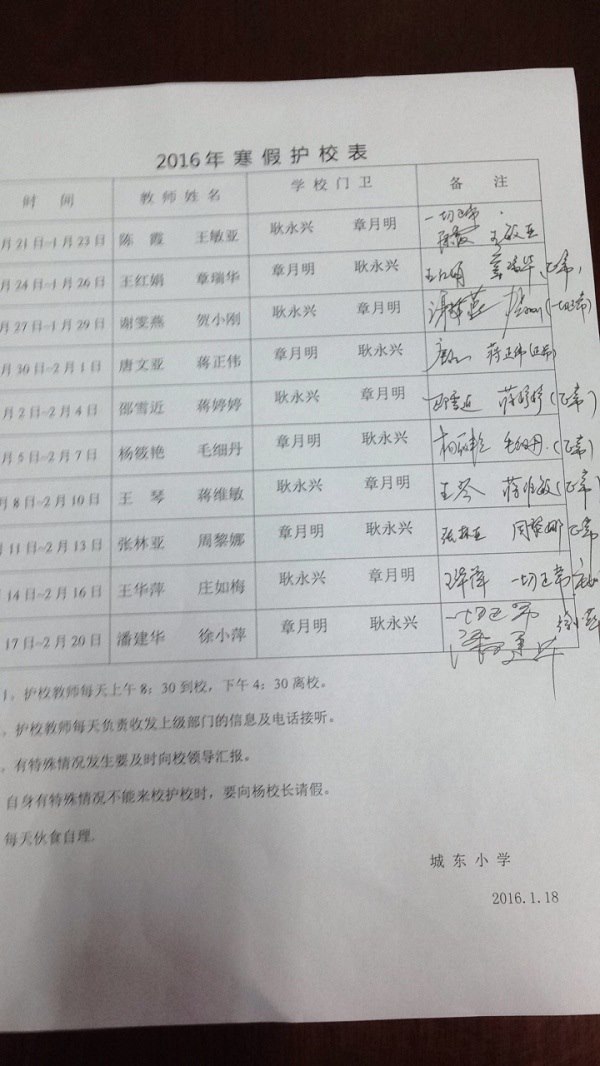 2016年寒假护校表
时 间 教师姓名 学校门卫 备 注
月21日-1月23日 陈 霞 王敏亚 耿永兴 章月明 一切正常 陈霞 王敏亚
月24日-1月26日 王红娟 章瑞华 章月明 耿永兴 章瑞华 正常
月27日-1月29日 谢雯燕 贺小刚 耿永兴 章月明 谢雯燕 (一切正常)
月30日-2月1日 唐文亚 蒋正伟 章月明 耿永兴 蒋正伟(正常)
月2日-2月4日 邵雪近 蒋婷婷 耿永兴 章月明 邵雪近 蒋婷婷(正常)
月5日-2月7日 杨筱艳 毛细丹 章月明 耿永兴 杨筱艳 毛细丹(正常)
月8日-2月10日 王 琴 蒋维敏 耿永兴 章月明 王琴 蒋维敏(正常)
月11日-2月13日 张林亚 周黎娜 章月明 耿永兴 张林亚 周黎娜 正常
14日-2月16日 王华萍 庄如梅 耿永兴 章月明 王华萍 一切正常
17日-2月20日 潘建华 徐小萍 章月明 耿永兴 一切正常 潘建华
1、护校教师每天上午8：30到校，下午4：30离校。
、护校教师每天负责收发上级部门的信息及电话接听。
、有特殊情况发生要及时向校领导汇报。
自身有特殊情况不能来校护校时，要向杨校长请假。
每天伙食自理.
城东小学
2016.1.18